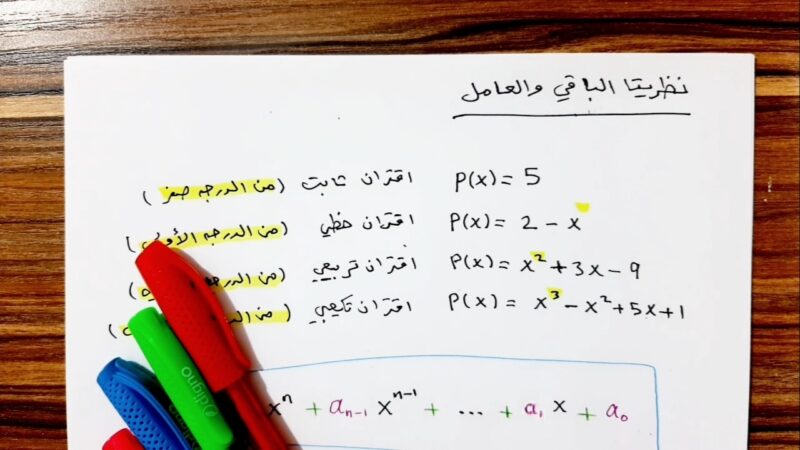 نظريتا الباقي والعامل
P(x) = 5 اقتران ثابت (من الدرجه صفر)
P(x) = 2 - x اقتران خطي (من الدرجه الأولى)
P(x) = x² + 3x - 9 اقتران تربيعي (من
P(x) = x³ - x² + 5x + 1 اقتران تكعيبي (من
xⁿ + aₙ₋₁ xⁿ⁻¹ + ... + a₁ x + a₀
digno